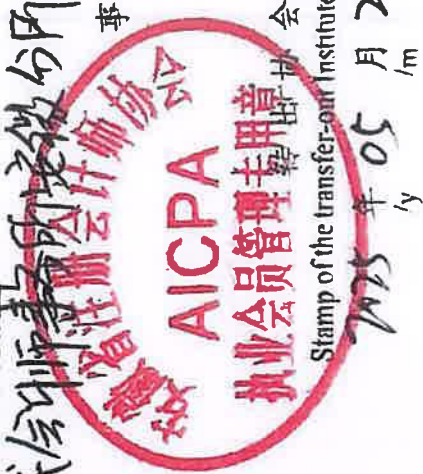 会计师事务所安徽分所
事
安徽省注册会计师协会
AICPA
执业会员管理专用章
转出协会
Stamp of the transfer-out Institute
2025 年 05 月 2
/y /m